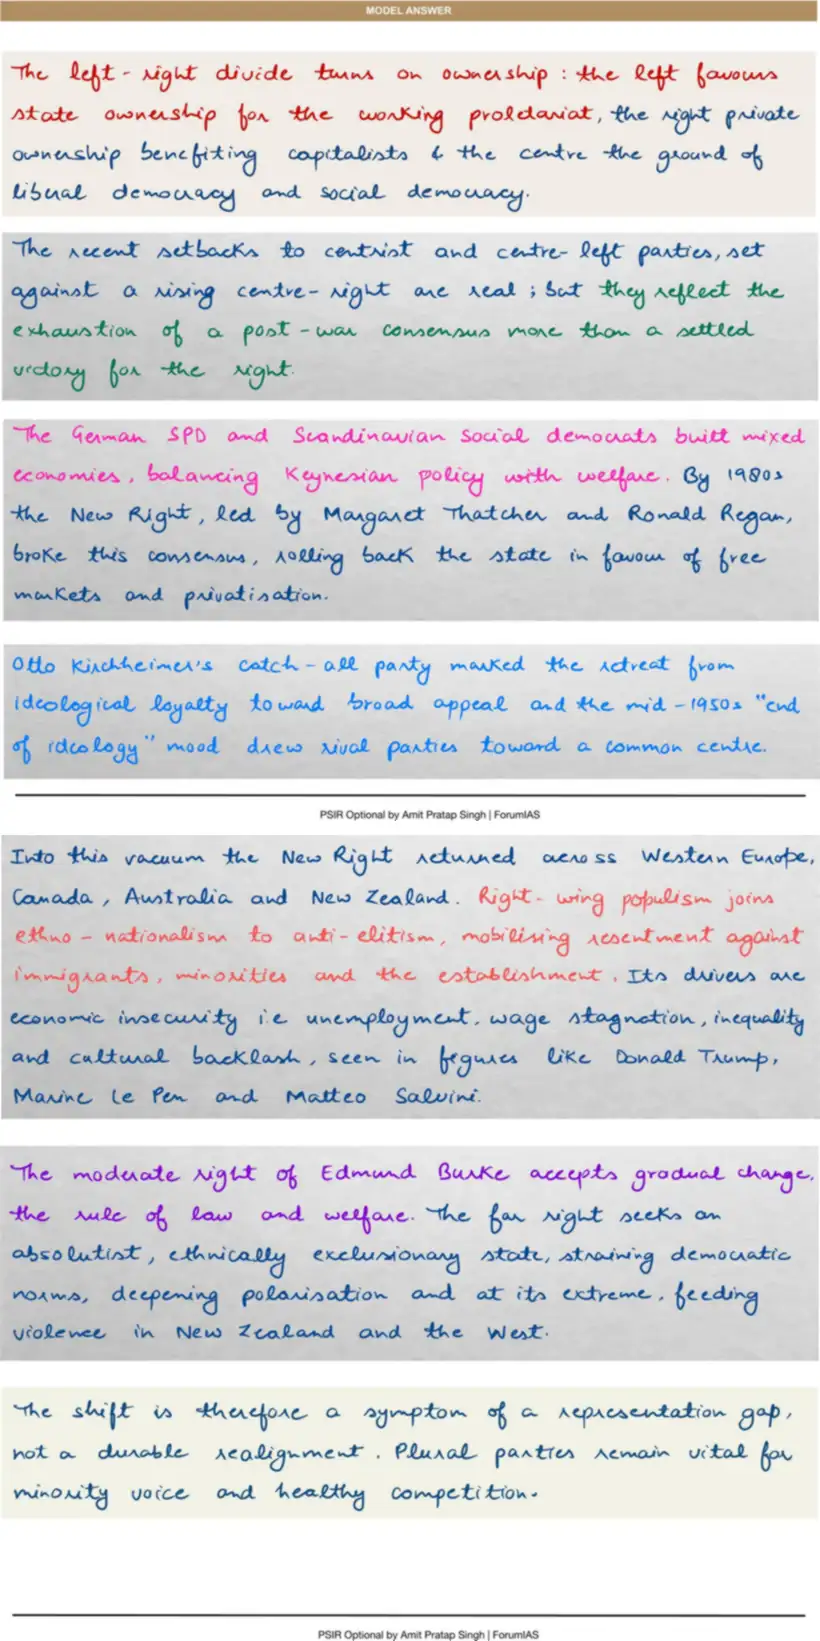 MODEL ANSWER
The left-right divide turns on ownership : the left favours
state ownership for the working proletariat, the right private
ownership benefiting capitalists & the centre the ground of
liberal democracy and social democracy.
The recent setbacks to centrist and centre-left parties, set
against a rising centre-right are real ; but they reflect the
exhaustion of a post-war consensus more than a settled
victory for the right.
The German SPD and Scandinavian social democrats built mixed
economies, balancing Keynesian policy with welfare. By 1980s
the New Right, led by Margaret Thatcher and Ronald Regan,
broke this consensus, rolling back the state in favour of free
markets and privatisation.
Otto Kirchheimer's catch-all party marked the retreat from
ideological loyalty toward broad appeal and the mid-1950s "end
of ideology" mood drew rival parties toward a common centre.
PSIR Optional by Amit Pratap Singh | ForumIAS
Into this vacuum the New Right returned across Western Europe,
Canada, Australia and New Zealand. Right-wing populism joins
ethno-nationalism to anti-elitism, mobilising resentment against
immigrants, minorities and the establishment. Its drivers are
economic insecurity i.e unemployment, wage stagnation, inequality
and cultural backlash, seen in figures like Donald Trump,
Marine Le Pen and Matteo Salvini.
The moderate right of Edmund Burke accepts gradual change,
the rule of law and welfare. The far right seeks an
absolutist, ethnically exclusionary state, straining democratic
norms, deepening polarisation and at its extreme, feeding
violence in New Zealand and the West.
The shift is therefore a symptom of a representation gap,
not a durable realignment. Plural parties remain vital for
minority voice and healthy competition.
PSIR Optional by Amit Pratap Singh | ForumIAS